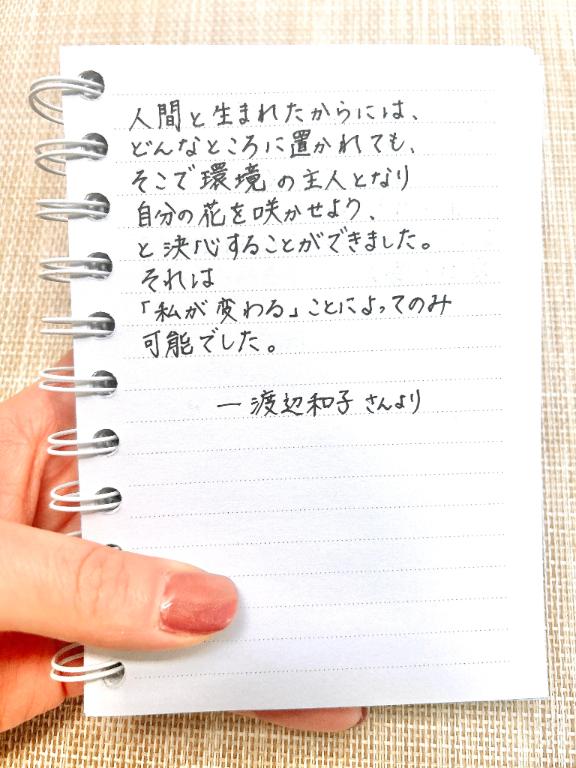 人間と生まれたからには、
どんなところに置かれても、
そこで環境の主人となり
自分の花を咲かせよう、
と決心することができました。
それは
「私が変わる」ことによってのみ
可能でした。
ー渡辺和子さんより